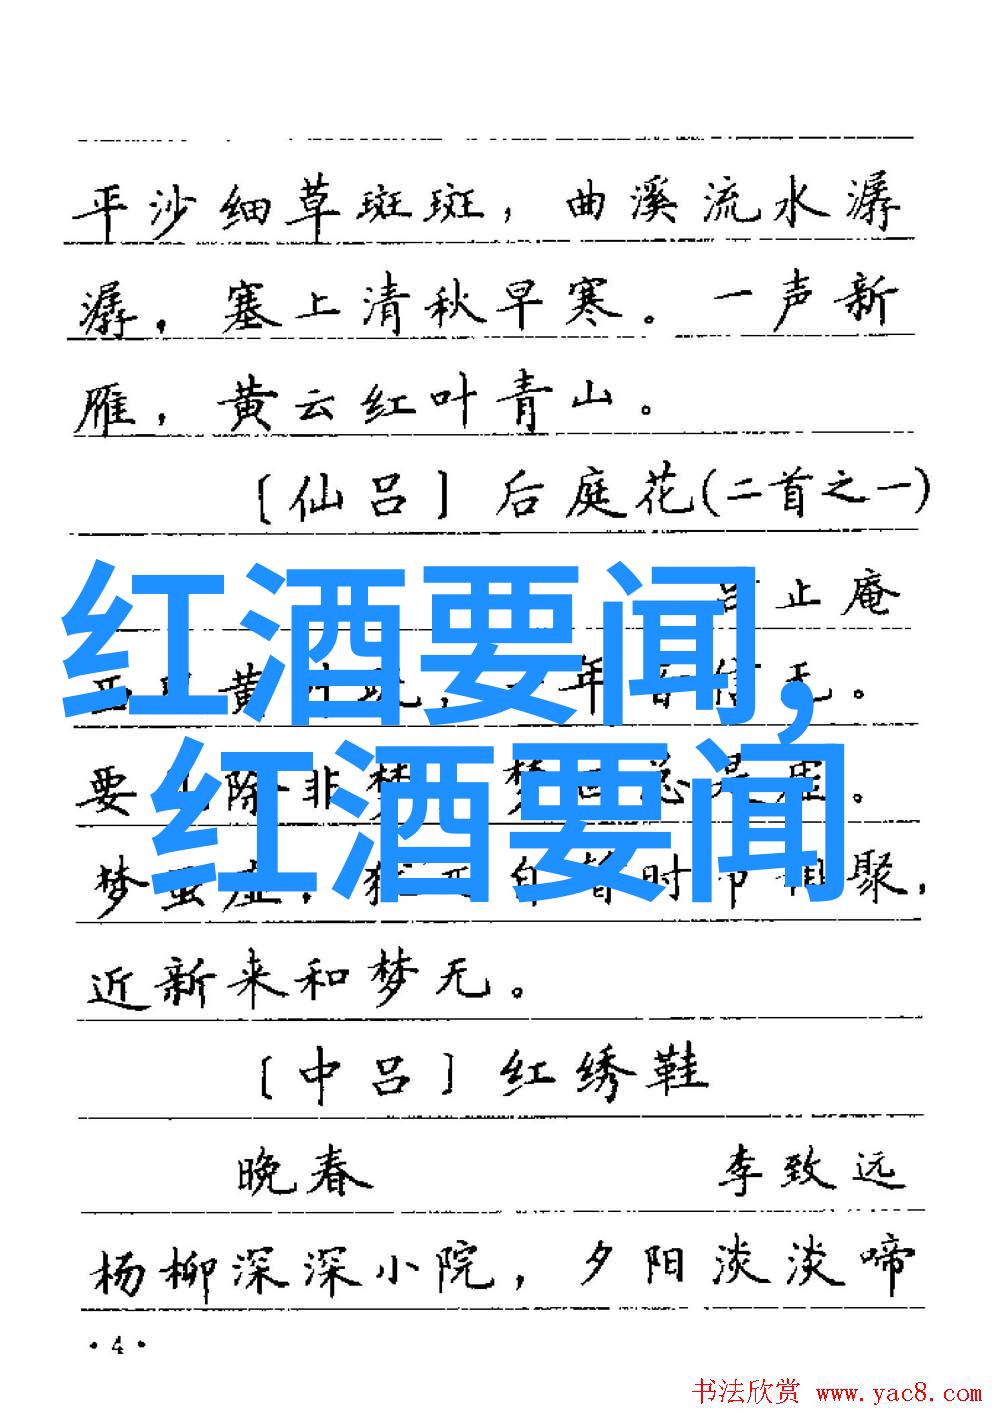 平沙细草斑斑，曲溪流水潺
潺，塞上清秋早寒。一声新
雁，黄云红叶青山。
〔仙吕〕后庭花(二首之一)
止庵
红酒要闻，
黄 年 信无。
红酒要闻
要 除非梦
梦 虚， 时 相聚，
近新来和梦无。
〔中吕〕红绣鞋
晚春 李致远
杨柳深深小院，夕阳淡淡啼
·4·
书法欣赏 www.yac8.com